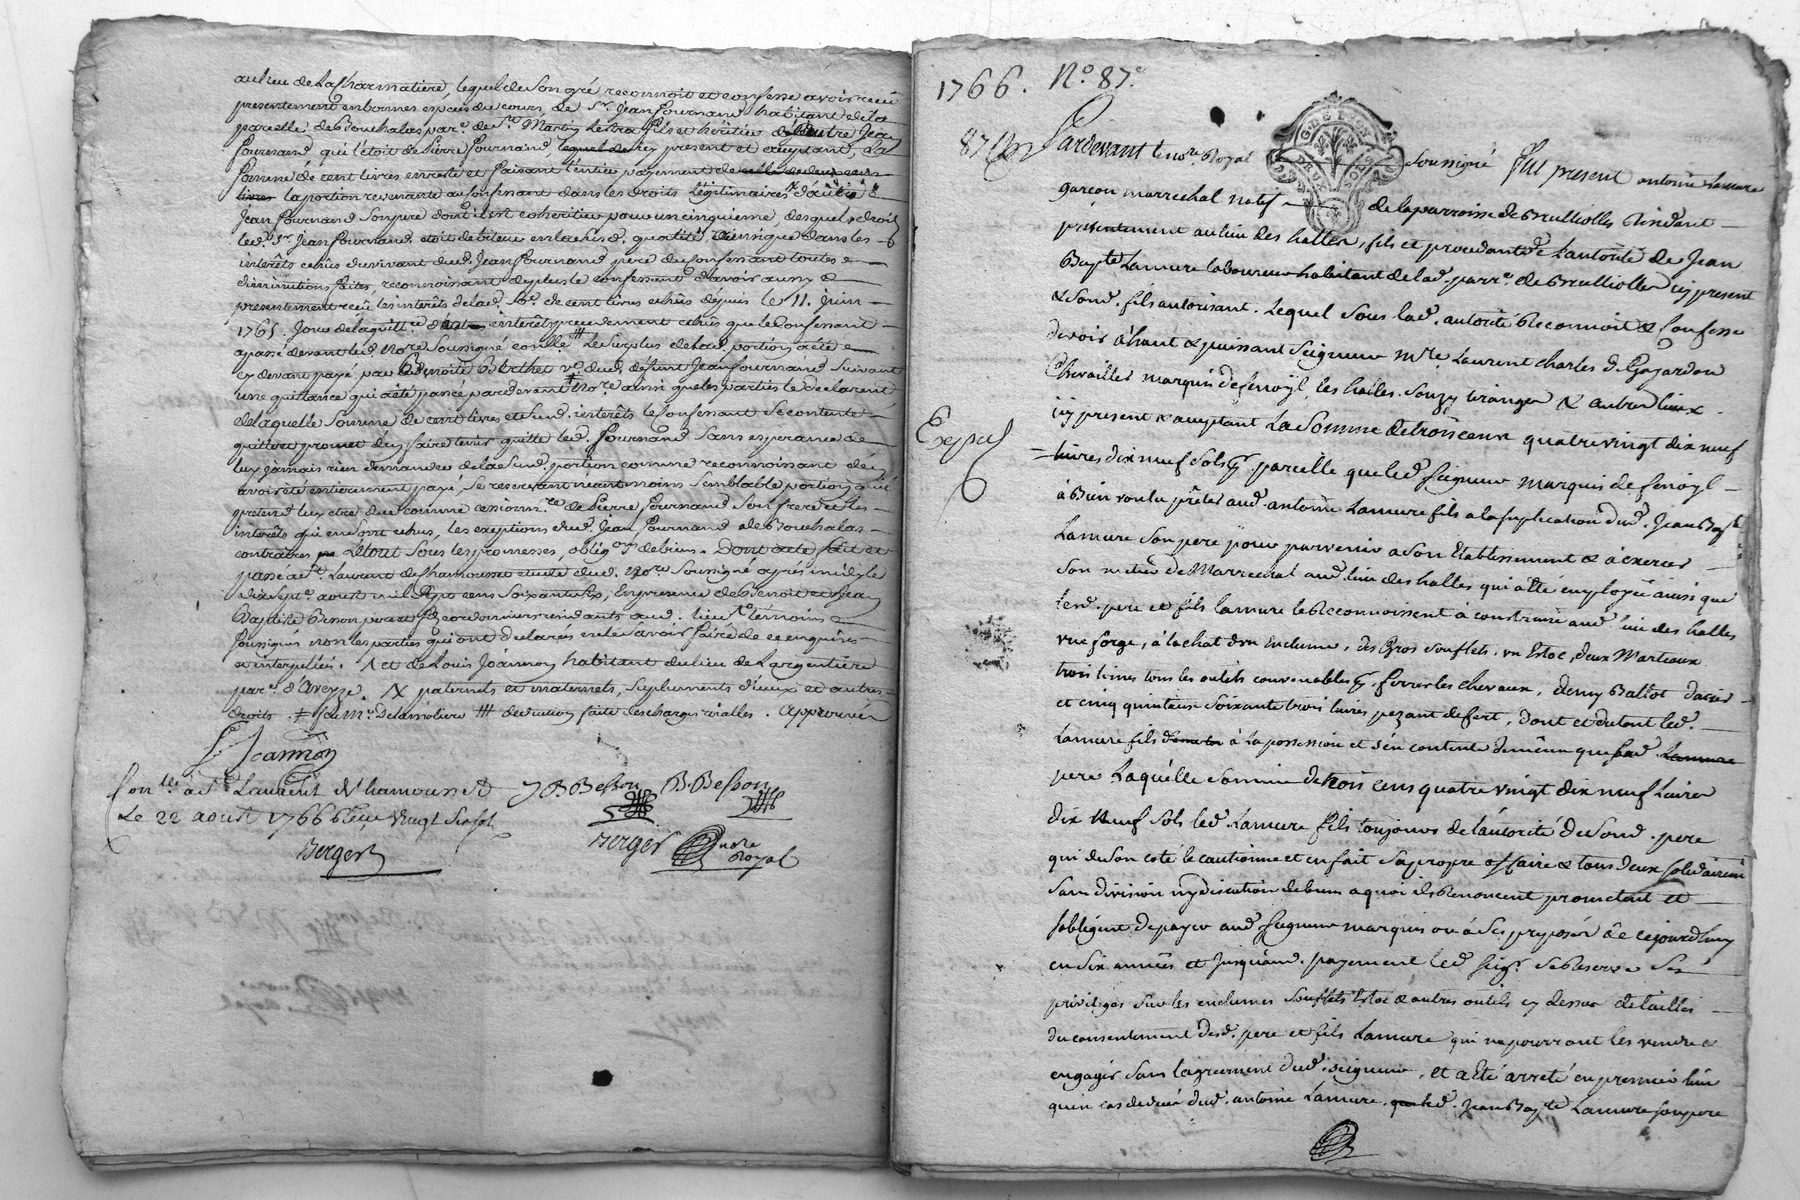 au lieu de Lafharmatiere, lequel de son gré reconnoit et confesse avoir receu
presentement en bonnes especes du cours, de Sr. Jean fournand habitant de la
par. de St. Martin Lestra fils et héritier de autre Jean
fournand, qui l'étoit de Pierre fournand, icy present et acceptant, La
somme de cent livres en reste et faisant l'entier payement de
livres la portion revenante au confessant dans les droits légitimaires
Jean fournand son pere dont il est coheritier pour un cinquieme, desquels droits
led. Sr. Jean fournand étoit debiteur en lad. qualité ainsi que dans les
interêts echûs du vivant dud. Jean fournand pere du confessant toutes
diminutions faites, reconnoissant de plus le confessant d'avoir aussy
presentement receu les interêts de lad. so. de cent livres echûs depuis le 11. juin
1765. interêts precedement echûs que le Confessant
a passé devant led. nore. soussigné Le surplus de lad. portion a été
cy devant payé par Benoite Berthet ve. dud. défunt Jean fournand suivant
une quittance qui a été passé par devant nore. ainsi que les parties le declarent
de laquelle somme de cent livres et sud. interêts le Confessant se contente
quitte et promet d'en faire tenir quitte led. fournand sans esperance de
luy jamais rien demander de la sud. portion comme reconnoissant d'en
avoir été entierement payé, se reservant neantmoins semblable portion qu'il
pretend luy etre due comme cessionnre. de Pierre fournand son frere et les
interêts qui en sont echus, les exceptions dud. Jean fournand
contraires Le tout sous les promesses, oblig.ons de biens. Dont acte fait et
passé a St. Laurent de Chamousset etude dud. nore. soussigné après midy le
dix sept aoust mil sept cens soixante six, En presence de Benoit et Jean
Baptiste Besson pere et fils cordonniers residants aud. lieu témoins
soussignés non les parties qui ont declarés ne le savoir faire de ce enquises
et interpellées. et de Louis Joannon habitant du lieu de Largentiere
par. d'Aveyze. X paternels et maternels, suplements d'iceux et autres
droits. ‡ feu Me. Delamoliere deduction faite des charges roialles. approuvés
L Joannon
Con.lé à St. Laurent de Chamousset
Le 22 aoust 1766 Reçu vingt six sols
Berger
J B Besson B. Besson
Berger nore Royal
1766. No. 87.
87
Pardevant le nore. Royal soussigné Fut present antoine Lamure
garcon marrechal natif de la parroisse de Brulliolles Residant
présentement au lieu des halles, fils et procedant de L'autorité de Jean
Bapte. Lamure laboureur habitant de lad. parre. de Brulliolles icy present
& sond. fils autorisant. Lequel sous lad. autorité Reconnoit & Confesse
devoir à haut & puissant Seigneur Mre. Laurent charles De Gayardon
marquis de fenoyl, les halles. Souzy & autres lieux
icy present & acceptant La Somme de trois cent quatre vingt dix neuf
livres dix neuf sols pr. pareille que led. Seigneur marquis de fenoyl
à Bien voulu prêter aud. antoine Lamure fils a la suplication dud. Jean Bapte.
Lamure son pere pour parvenir a son Etablissement & à exercer
Son metier de Marrechal aud. lieu des halles qui a été employée ainsi que
lesd. pere et fils Lamure le Reconnoissent à construire aud. lieu des halles
une forge, à l'achat d'un Enclume, des Gros soufflets, un Estoc, deux Marteaux
trois limes tous les outils convenables pr. ferrer les chevaux, demy Ballot d'acier
et cinq quintaux soixante trois livres pezant de fer, Dont et du tout led.
Lamure fils à La possession et s'en contente de même que sond.
pere Laquelle somme de trois cens quatre vingt dix neuf Livres
dix neuf sols led. Lamure fils toujours de l'autorité de sond. pere
qui de son coté le cautionne et en fait sa propre affaire & tous deux solidairement
sans division ny discution de biens a quoi ils Renoncent prometent et
s'obligent de payer aud. seigneur marquis ou à ses preposés de ce jourd'huy
en six années et jusqu'aud. payement led. seigr. se Reserve ses
privileges sur les enclumes soufflets Estoc & autres outils cy dessus detaillés
du consentement desd. pere et fils Lamure qui ne pourront les vendre &
engager sans l'agreement dud. seigneur, et a Eté arreté en premier lieu
qu'en cas de dud. antoine Lamure, led. Jean Bapte Lamure son pere